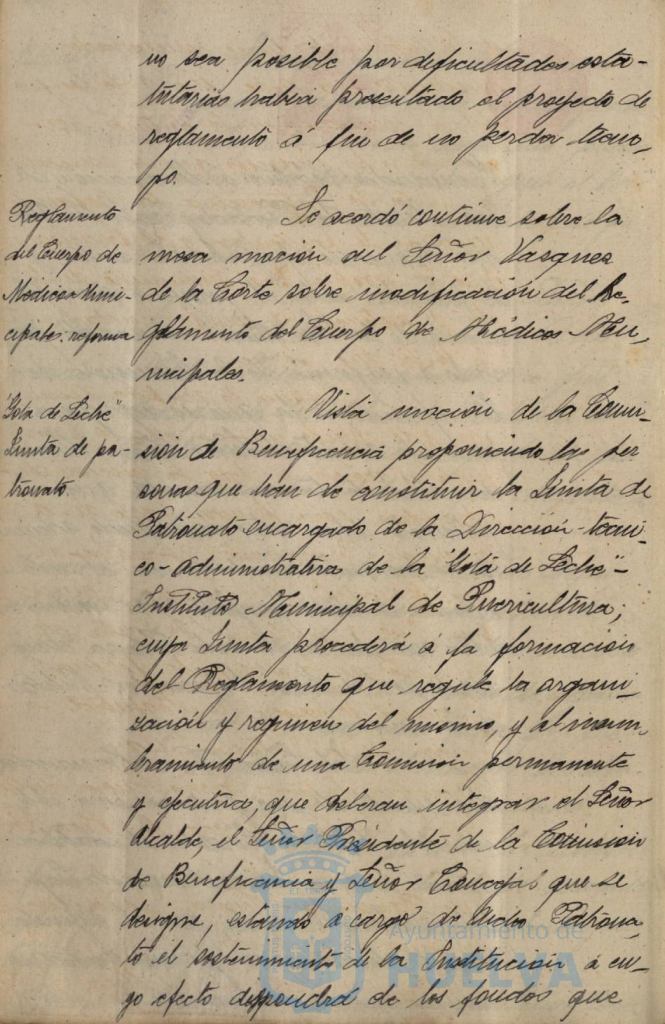 no sea posible por dificultades esta-
tutarias habia presentado el proyecto de
reglamento á fin de no perder tiem-
po.
Reglamento
del Cuerpo de
Medicos Muni-
cipales: reforma
Se acordó continue sobre la
mesa moción del Señor Vasquez
de la Corte sobre modificación del Re-
glamento del Cuerpo de Médicos Mu-
nicipales.
"Gota de Leche"
Junta de pa-
tronato.
Vista moción de la Comi-
sion de Beneficencia proponiendo las per
sonas que han de constituir la Junta de
Patronato encargado de la Dirección-tecni-
co-administrativa de la "Gota de Leche"-
Instituto Municipal de Puericultura;
cuya Junta procederá á la formación
del Reglamento que regule la organi-
zación y regimen del mismo, y al nom-
bramiento de una Comisión permanente
y ejecutiva, que deberan integrar el Señor
Alcalde, el Señor Presidente de la Comision
de Beneficencia y Señor Concejal que se
designe, estando á cargo de dicho Patrona-
to el sostenimiento de la Institución á cu-
yo efecto dispondrá de los fondos que
Ayuntamiento de
HUELVA